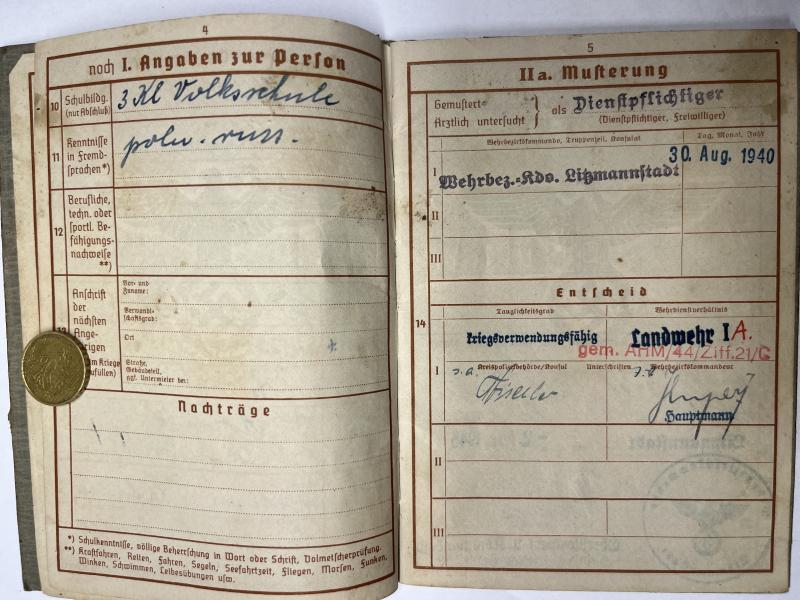 4
noch I. Angaben zur Person
10 Schulbildg. (nur Abschluß) 3 Kl Volksschule
11 Kenntnisse in Fremd-
sprachen*) poln. russ.
12 Berufliche,
techn. oder
sportl. Be-
fähigungs-
nachweise
**)
13 Anschrift
der
nächsten
Ange-
rigen
m Kriege
zufüllen)
Vor- und
Zuname:
Verwandt-
schaftsgrad:
Ort
Straße,
Gebäudeteil,
ggf. Untermieter bei:
Nachträge
*) Schulkenntnisse, völlige Beherrschung in Wort oder Schrift, Dolmetscherprüfung.
**) Kraftfahren, Reiten, Fahren, Segeln, Seefahrtzeit, Fliegen, Morsen, Funken,
Winken, Schwimmen, Leibesübungen usw.
5
IIa. Musterung
Gemustert
Ärztlich untersucht } als Dienstpflichtiger
(Dienstpflichtiger, Freiwilliger)
Wehrbezirkskommando, Truppenteil, Konsulat
Tag, Monat, Jahr
30. Aug. 1940
I Wehrbez.-Kdo. Litzmannstadt
II
III
Entscheid
14
Tauglichkeitsgrad
Wehrdienstverhältnis
kriegsverwendungsfähig
Landwehr I A.
gem. AHM/44/Ziff.21/C
I
Kreispolizeibehörde/Konsul Unterschriften Wehrbezirkskommandeur
Hauptmann
II
III